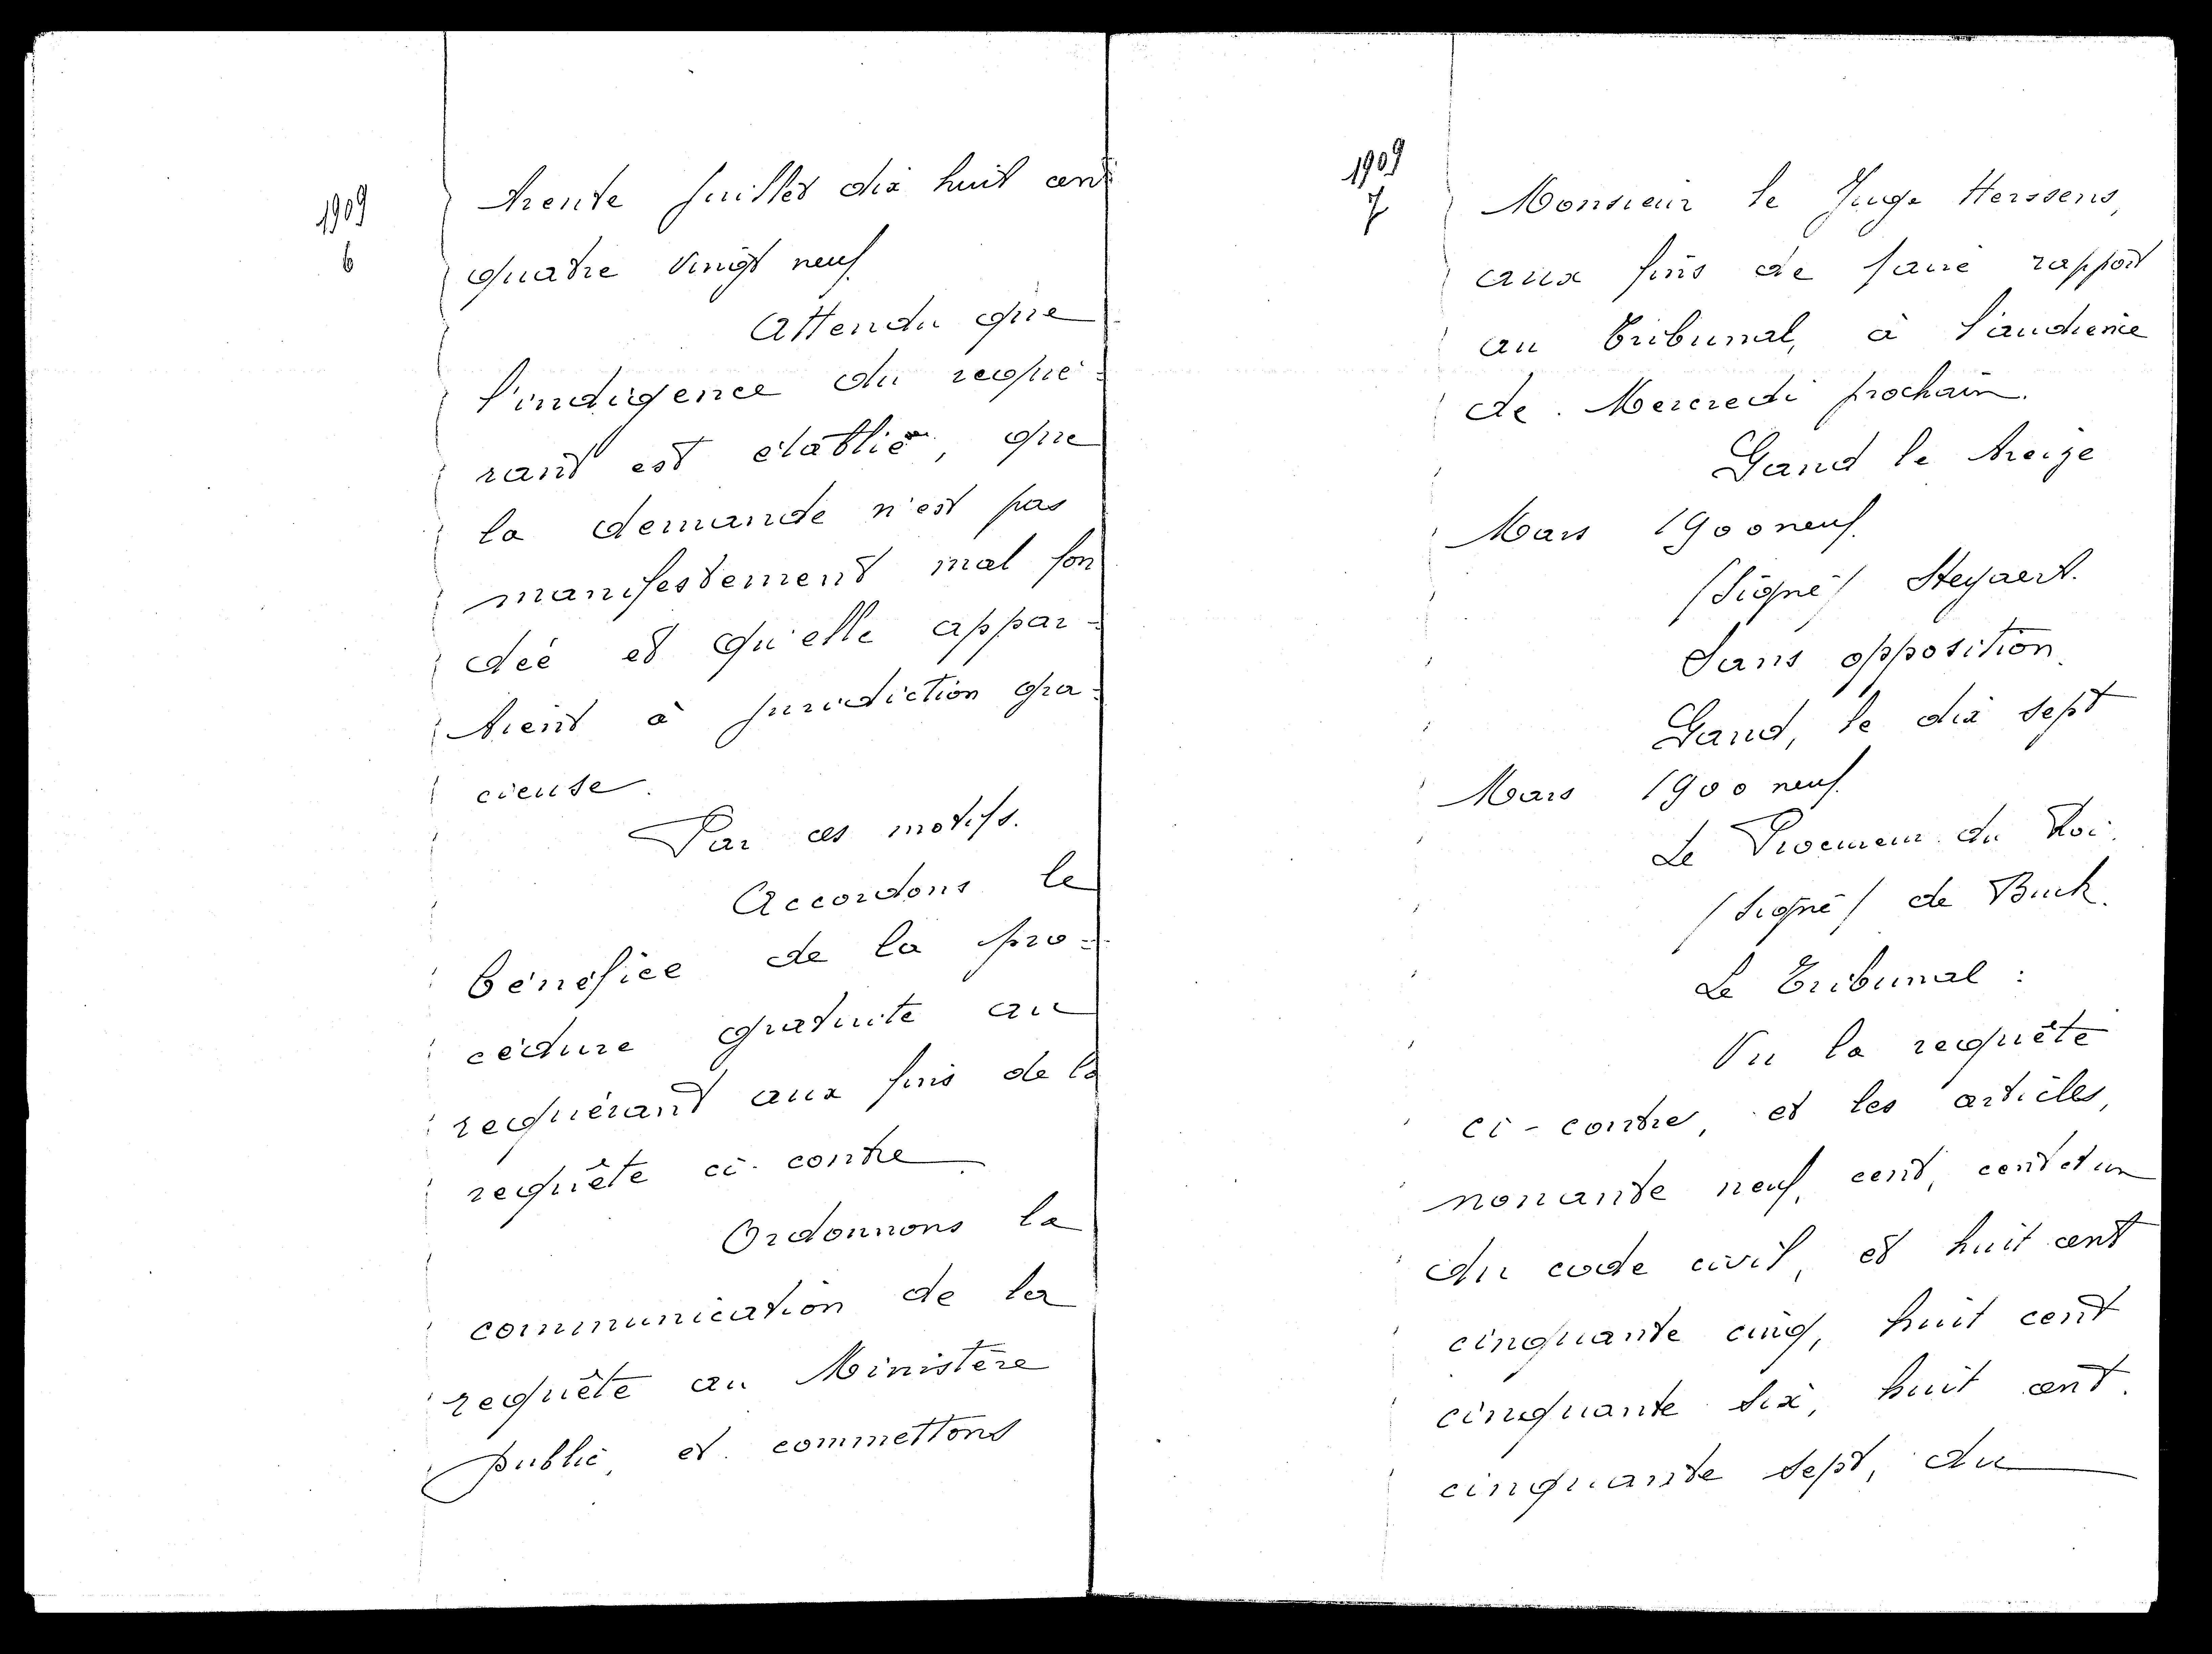 1909
6
trente juillet dix huit cent
quatre vingt neuf.
Attendu que
l'indigence du requé=
rant est établie, que
la demande n'est pas
manifestement mal fon
dée et qu'elle appar=
tient à juridiction gra=
cieuse.
Par ces motifs.
Accordons le
bénéfice de la pro=
cédure gratuite au
requérant aux fins de la
requête ci-contre.
Ordonnons la
communication de la
requête au Ministère
public, et commettons
1909
7
Monsieur le Juge Herssens,
aux fins de faire rapport
au Tribunal, à l'audience
de Mercredi prochain.
Gand le treize
Mars 1900 neuf.
/Signé/ Steyaert.
Sans opposition.
Gand, le dix sept
Mars 1900 neuf.
Le Procureur du Roi.
/Signé/ de Buck.
Le Tribunal :
Vu la requête
ci-contre, et les articles,
nonante neuf, cent, cent et un
du code civil, et huit cent
cinquante cinq, huit cent
cinquante six, huit cent.
cinquante sept, du